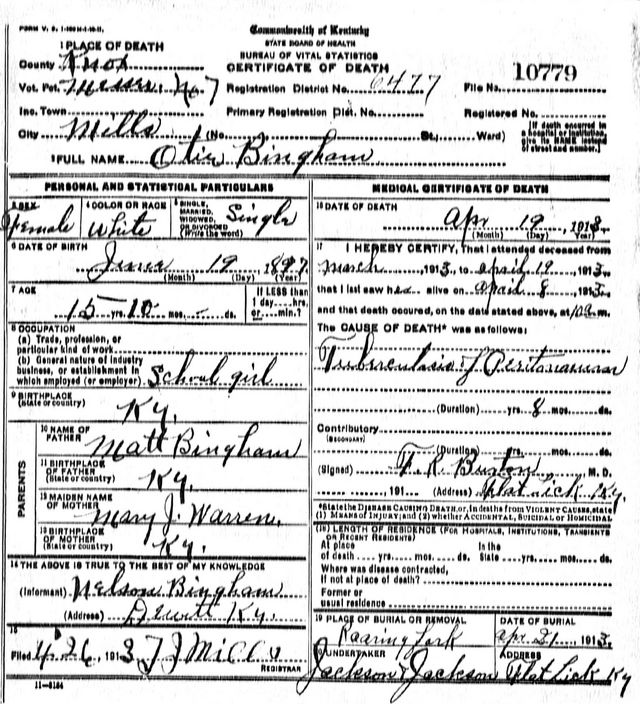 FORM V. S. 1-
Commonwealth of Kentucky
STATE BOARD OF HEALTH
BUREAU OF VITAL STATISTICS
CERTIFICATE OF DEATH
1 PLACE OF DEATH
County Knox
Vot. Pct. No 7 Registration District No. 6477 File No. 10779
Inc. Town Primary Registration Dist. No. Registered No.
City Mills (No. St., Ward) [If death occurred in a hospital or institution, give its NAME instead of street and number.]
2 FULL NAME Otie Bingham
PERSONAL AND STATISTICAL PARTICULARS
3 SEX Female
4 COLOR OR RACE White
5 SINGLE, MARRIED, WIDOWED OR DIVORCED (Write the word) Single
6 DATE OF BIRTH
June 19 1897
(Month) (Day) (Year)
7 AGE
15 yrs. 10 mos. ds.
If LESS than 1 day....hrs. or....min.?
8 OCCUPATION
(a) Trade, profession, or
particular kind of work
(b) General nature of industry
business, or establishment in
which employed (or employer) School girl
9 BIRTHPLACE
(State or country) Ky.
PARENTS
10 NAME OF
FATHER Matt Bingham
11 BIRTHPLACE
OF FATHER
(State or country) Ky.
12 MAIDEN NAME
OF MOTHER Mary J. Warren
13 BIRTHPLACE
OF MOTHER
(State or country) Ky.
14 THE ABOVE IS TRUE TO THE BEST OF MY KNOWLEDGE
(Informant) Nelson Bingham
(Address) Dewitt Ky.
15
Filed 4 26, 1913 T J Mills
REGISTRAR
11-3184
MEDICAL CERTIFICATE OF DEATH
16 DATE OF DEATH
Apr 19 1913
(Month) (Day) (Year)
17 I HEREBY CERTIFY, That I attended deceased from
March, 1913, to April 19 1913,
that I last saw her alive on April 8, 1913,
and that death occured, on the date stated above, at m.
The CAUSE OF DEATH* was as follows:
Tuberculosis of Peritonaeum
(Duration) yrs. 8 mos. ds.
Contributory
(SECONDARY)
(Duration) yrs. mos. ds.
(Signed) F. R. Burton M. D.
191 (Address) Flat Lick Ky.
*State the DISEASE CAUSING DEATH, or, in deaths from VIOLENT CAUSES, state
(1) MEANS OF INJURY; and (2) whether ACCIDENTAL, SUICIDAL or HOMICIDAL
(18) LENGTH OF RESIDENCE (FOR HOSPITALS, INSTITUTIONS, TRANSIENTS
OR RECENT RESIDENTS)
At place In the
of death yrs. mos. ds. State yrs. mos. ds.
Where was disease contracted,
if not at place of death?
Former or
usual residence
19 PLACE OF BURIAL OR REMOVAL
Roaring Fork
DATE OF BURIAL
Apr 21 1913
20 UNDERTAKER
Jackson & Jackson
ADDRESS
Flat Lick Ky